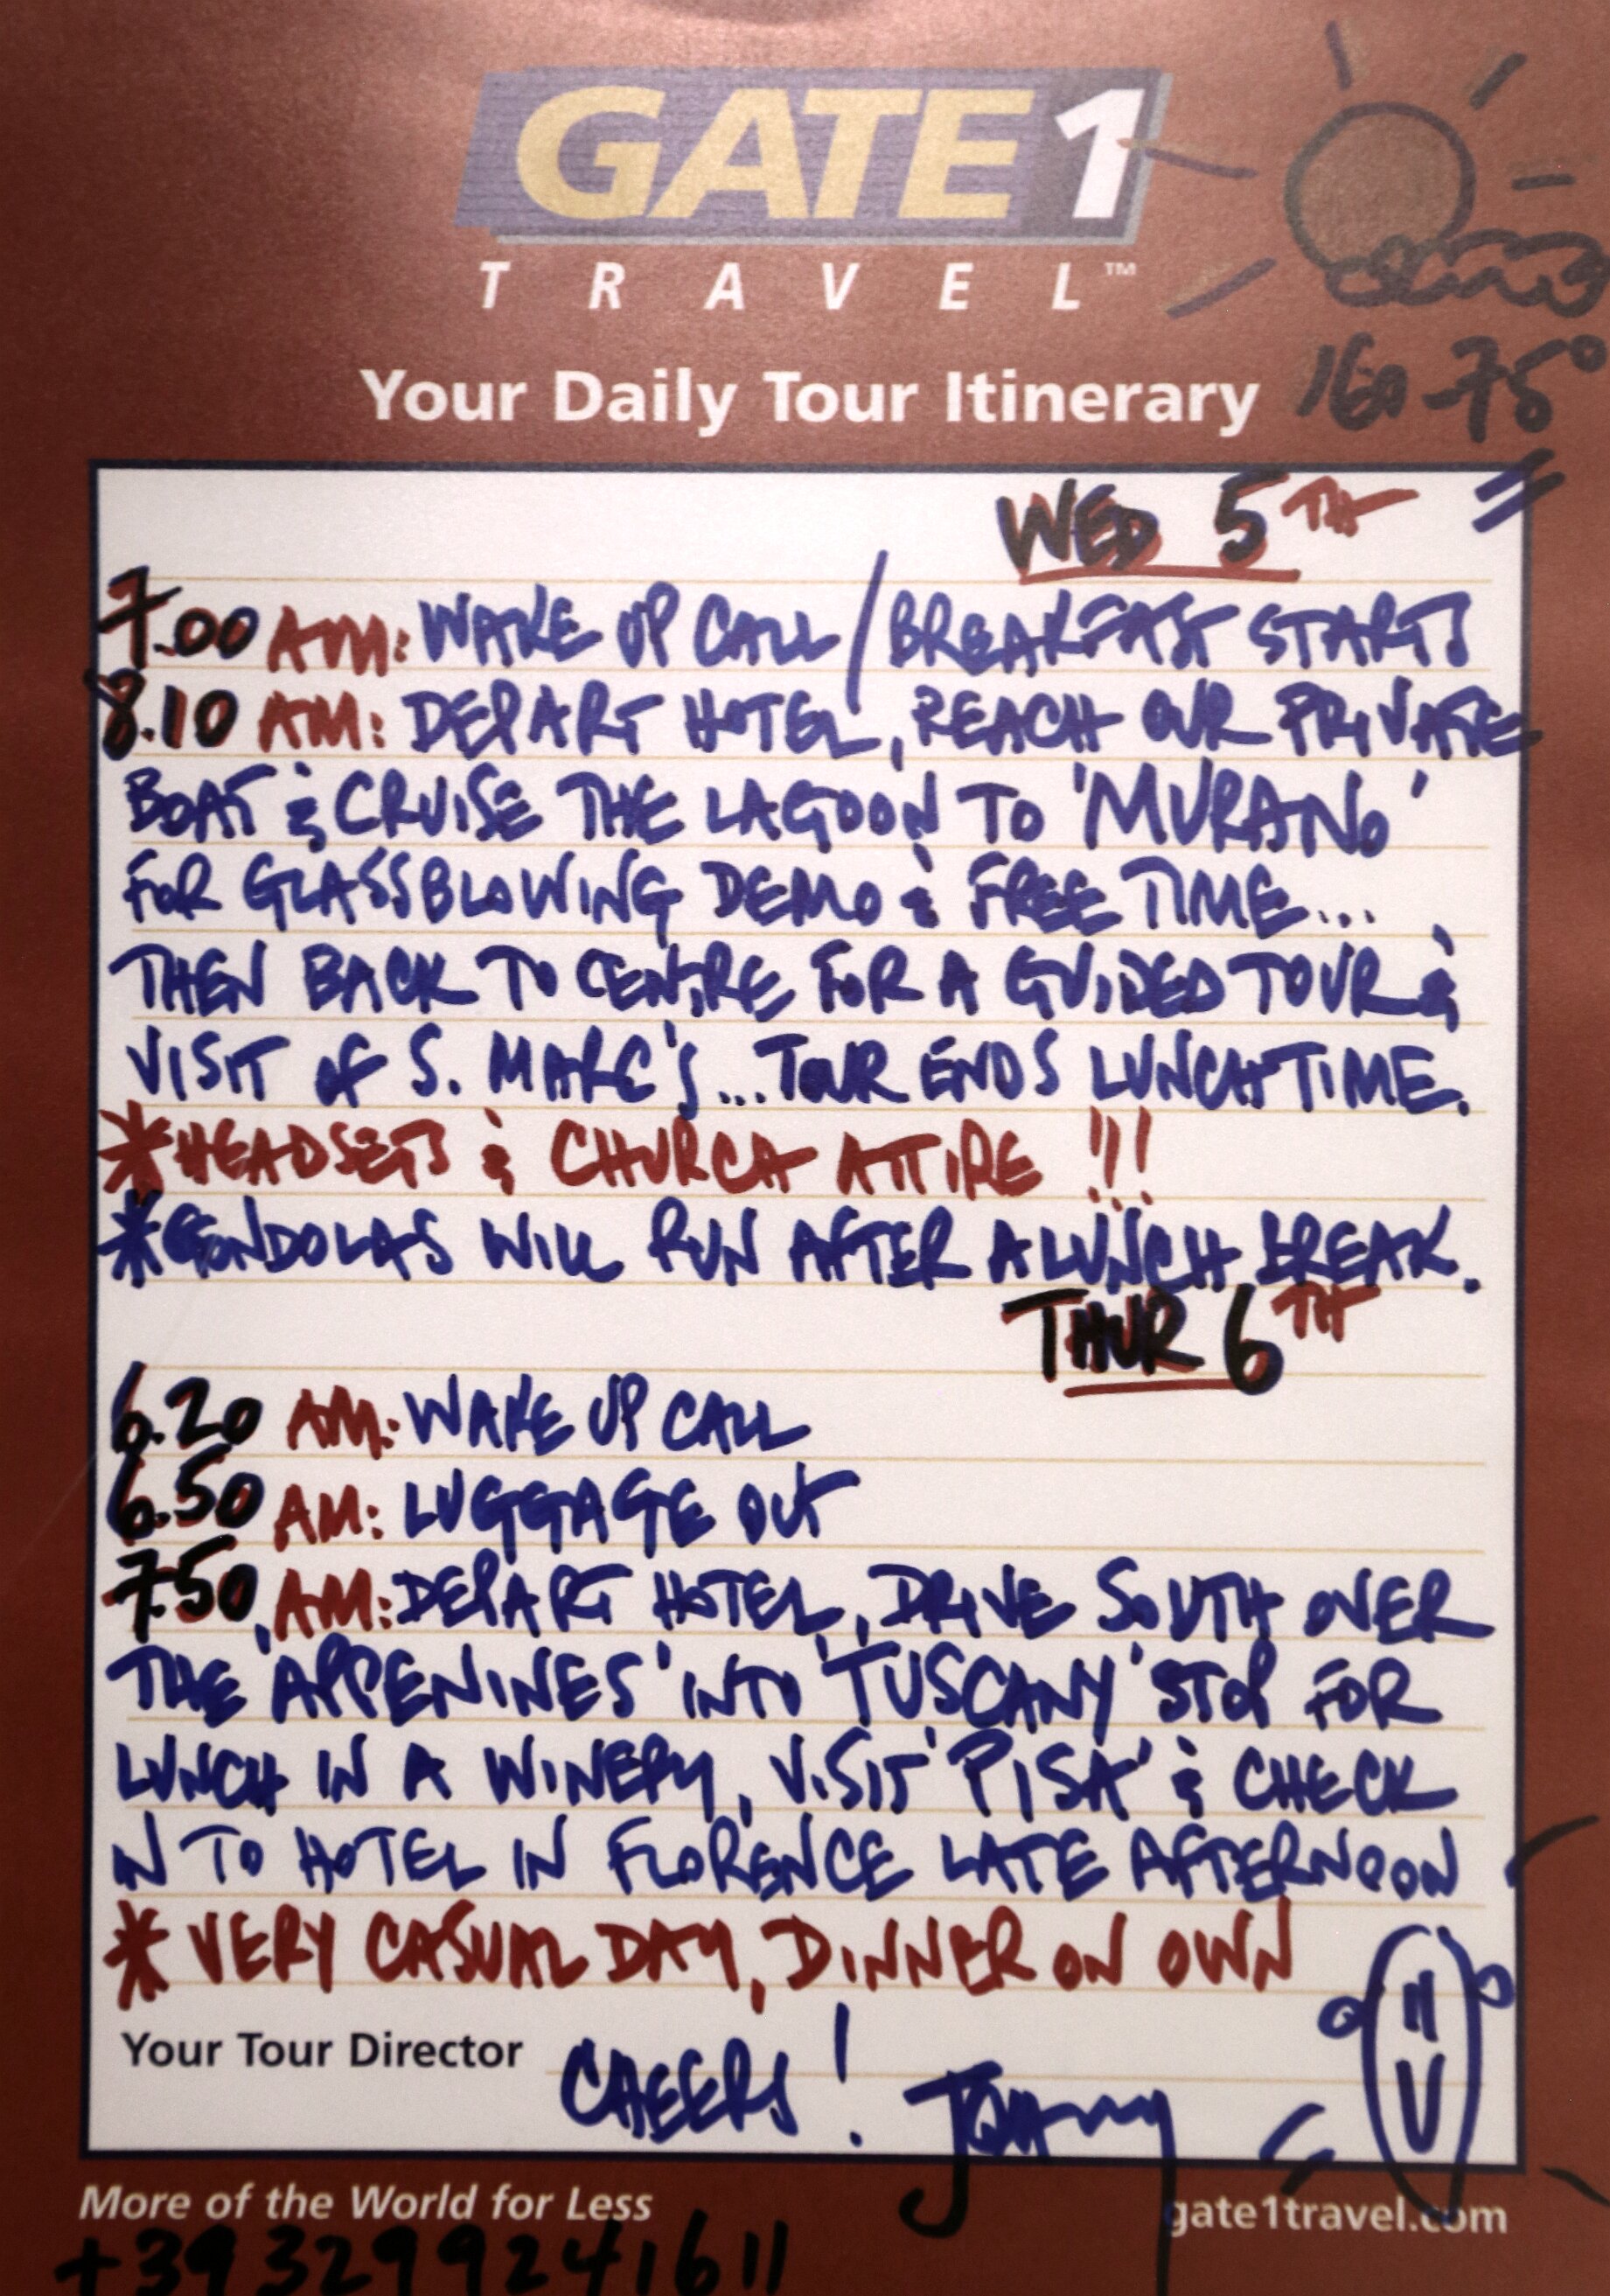 GATE 1
TRAVEL™
Your Daily Tour Itinerary
WED 5TH
7.00 AM: WAKE UP CALL / BREAKFAST STARTS
8.10 AM: DEPART HOTEL, REACH OUR PRIVATE
BOAT & CRUISE THE LAGOON TO 'MURANO'
FOR GLASSBLOWING DEMO & FREE TIME...
THEN BACK TO CENTRE FOR A GUIDED TOUR &
VISIT OF S. MARC'S... TOUR ENDS LUNCHTIME.
*HEADSETS & CHURCH ATTIRE !!!
*GONDOLAS WILL RUN AFTER A LUNCH BREAK.
THUR 6TH
6.20 AM: WAKE UP CALL
6.50 AM: LUGGAGE OUT
7.50 AM: DEPART HOTEL, DRIVE SOUTH OVER
THE 'APPENINES' INTO 'TUSCANY' STOP FOR
LUNCH IN A WINERY, VISIT 'PISA' & CHECK
IN TO HOTEL IN FLORENCE LATE AFTERNOON
* VERY CASUAL DAY, DINNER ON OWN
Your Tour Director CHEERS! 
More of the World for Less
gate1travel.com
+393299241611